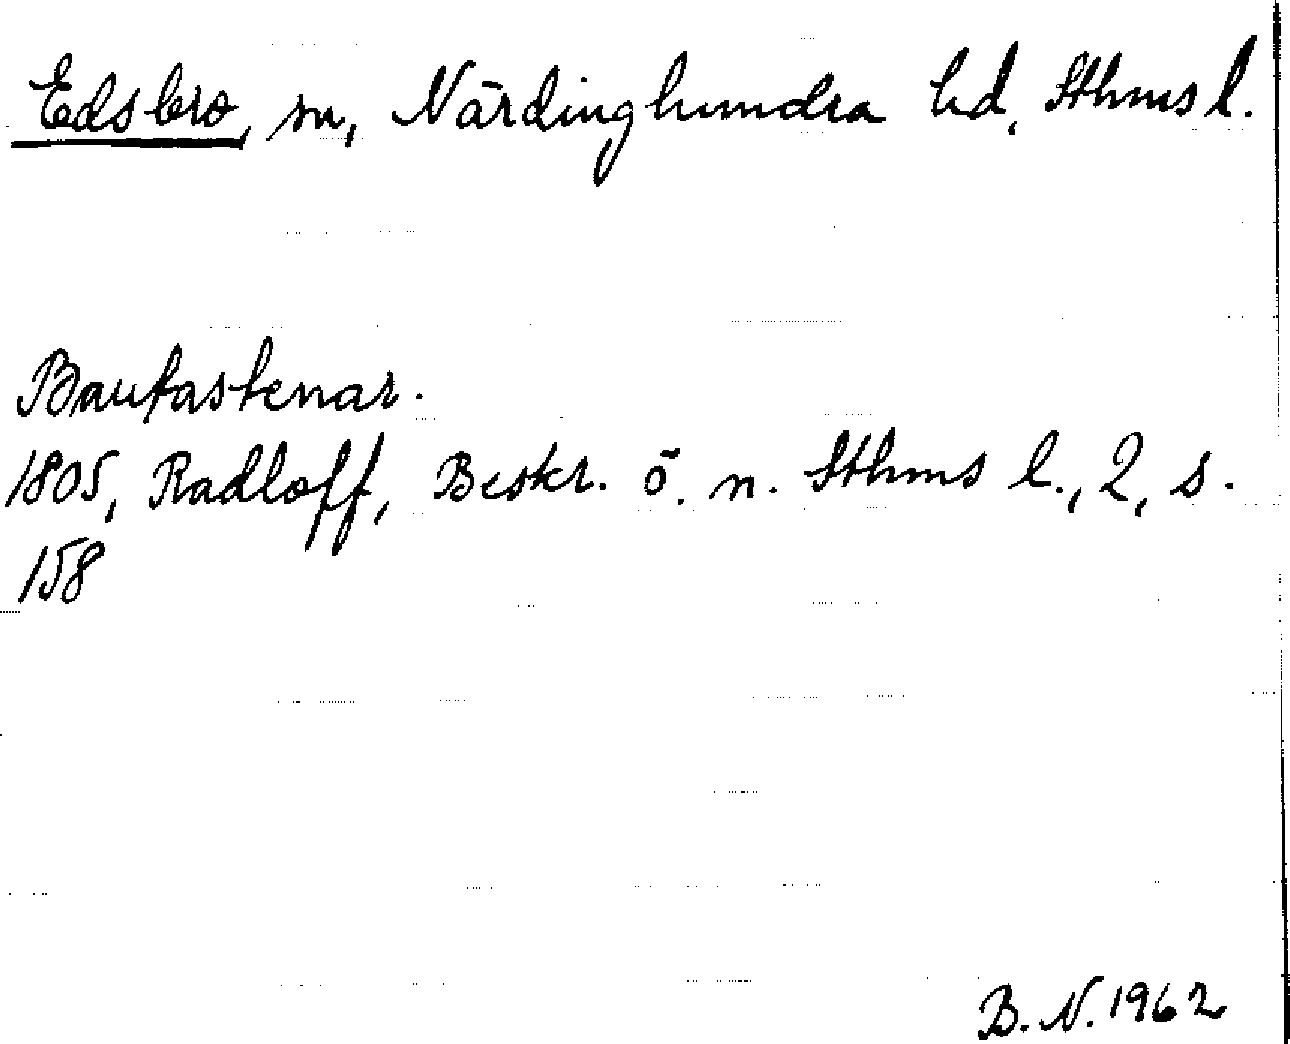 Edsbro, sn, Närdinghundra hd, Sthms l.
Bautastenar.
1805, Radloff, Beskr. ö. n. Sthms l., 2, s.
158
B. N. 1962